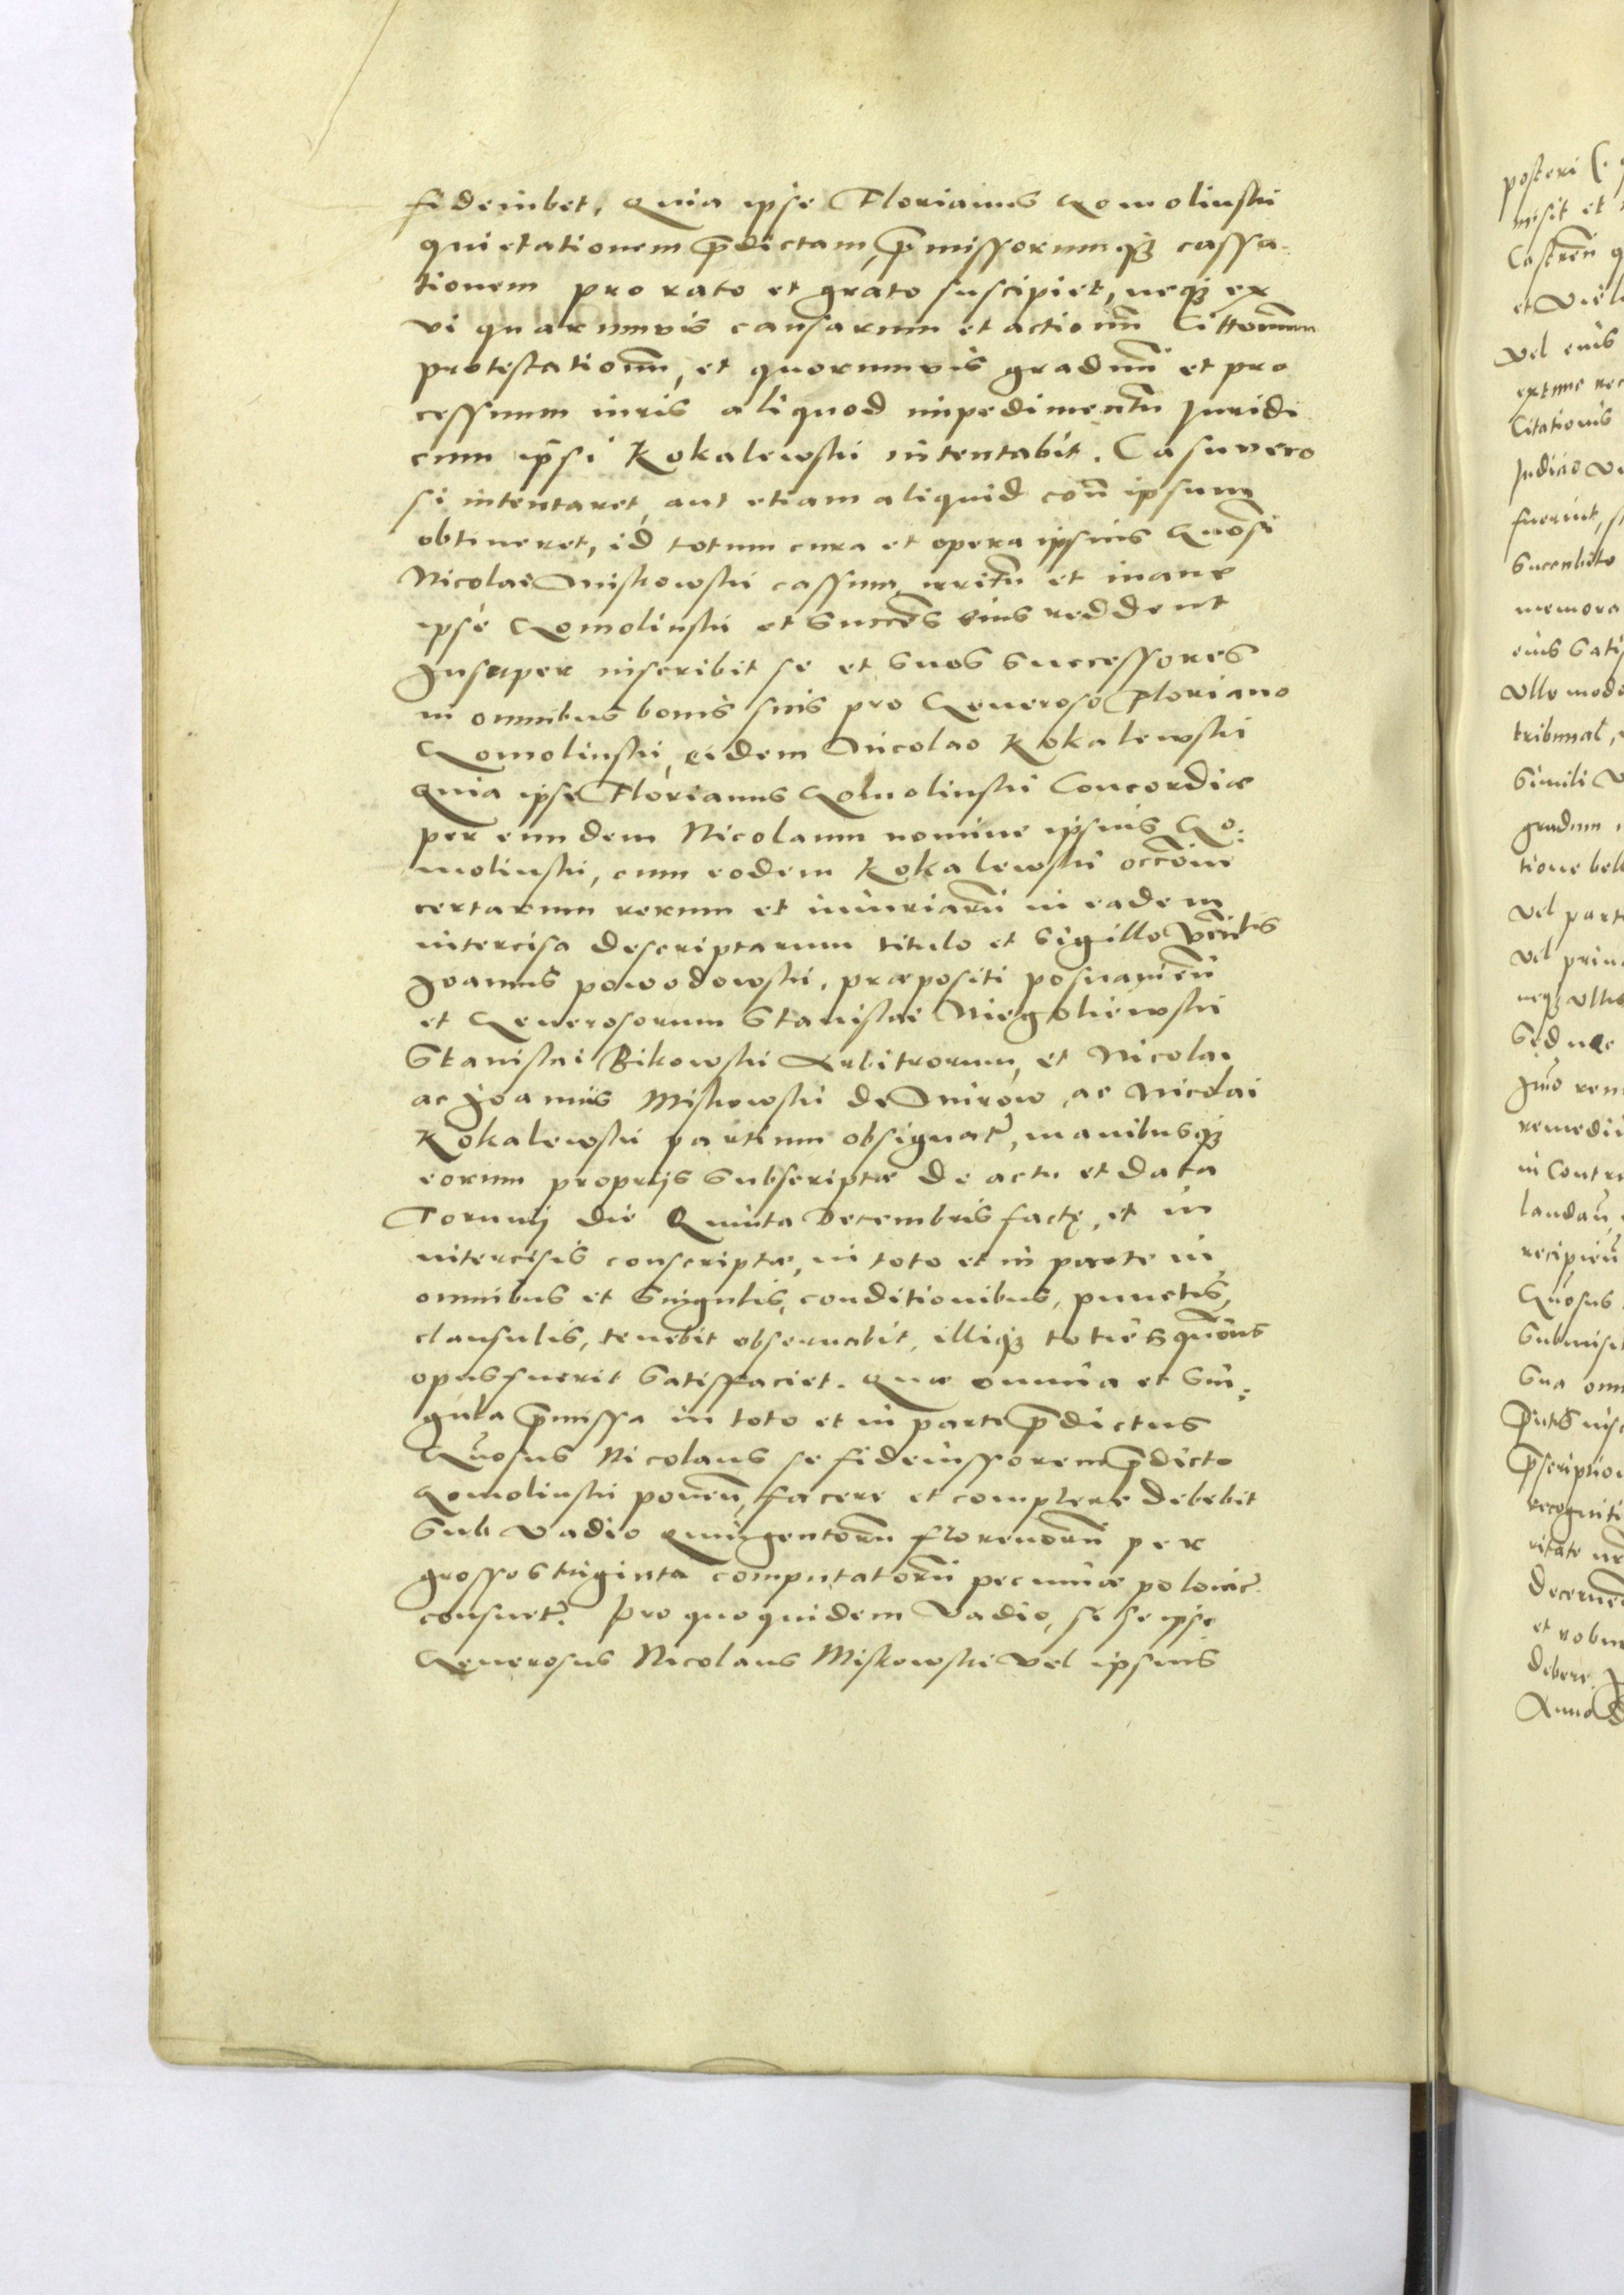 fideiubet, Quia ipse Florianus Gomolinski
quietationem p̃dictam, p̃missorumq3 cassa-
tionem pro rato et grato suscipiet, neq3 ex
vi quarumvis causarum et actionũ Citt̃onum
protestationũ, et quorumvis graduũ et pro
cessuum iuris aliquod impedimentũ Juridi
cum ipsi Kokalewski intentabit. Casu vero
si intentaret, aut etiam aliquid coñ ipsum
obtineret, id totum cura et opera ipsius Gñosi
Nicolai Miskowski cassum, irritũ et inane
ipse Gomolinski et Succ̃es eius reddent
Insuper inscribit se et suos successores
in omnibus bonis suis pro Generoso Floriano
Gomolinski, eidem Nicolao Kokalewski
Quia ipse Florianus Gomolinski Concordiæ
per eundem Nicolaum nomine ipsius Go:
molinski, cum eodem Kokalewski occ̃one
certarum rerum et iniuriarũ in eadem
intercisa descriptarum titulo et Sigillo Vẽnlis
Joannis powodowski, præpositi posnanieñ
et Generosorum Stanislai Niegoliewski
Stanislai Bikowski Arbitrorum, et Nicolai
ac Joannis Miskowski de Mirow, ac Nicolai
Kokalewski partium obsignat̃, manibusq3
eorum proprijs Subscriptæ de actu et data
Torunij die Quinta Decembris factę, et in
intercisis conscriptæ, in toto et in parte in
omnibus et Singulis, conditionibus, punctis,
clausulis, tenebit observabit, illiq3 toties quõns
opus fuerit Satisfaciet. Quæ omnia et Sin:
gula p̃missa in toto et in parte p̃dictus
Gñosus Nicolaus se fideiussorem p̃dicto
Gomolinski poneñ, facere et complere debebit
Sub Vadio Quingentorũ florenorũ per
grossos triginta computatorũ pecuniæ polonic̃
consuet̃. Pro quo quidem Vadio, se se ipse
Generosus Nicolaus Miskowski Vel ipsius
posteri
misit et
Vel eius
Citationis
Judicio
fuerint,
memora
eius Satis
Ullo modo
tribunal,
Simili
gradum
Vel parte
remedii
in Contra
Gñosus
Sua omn
recogniti
debere
Anno